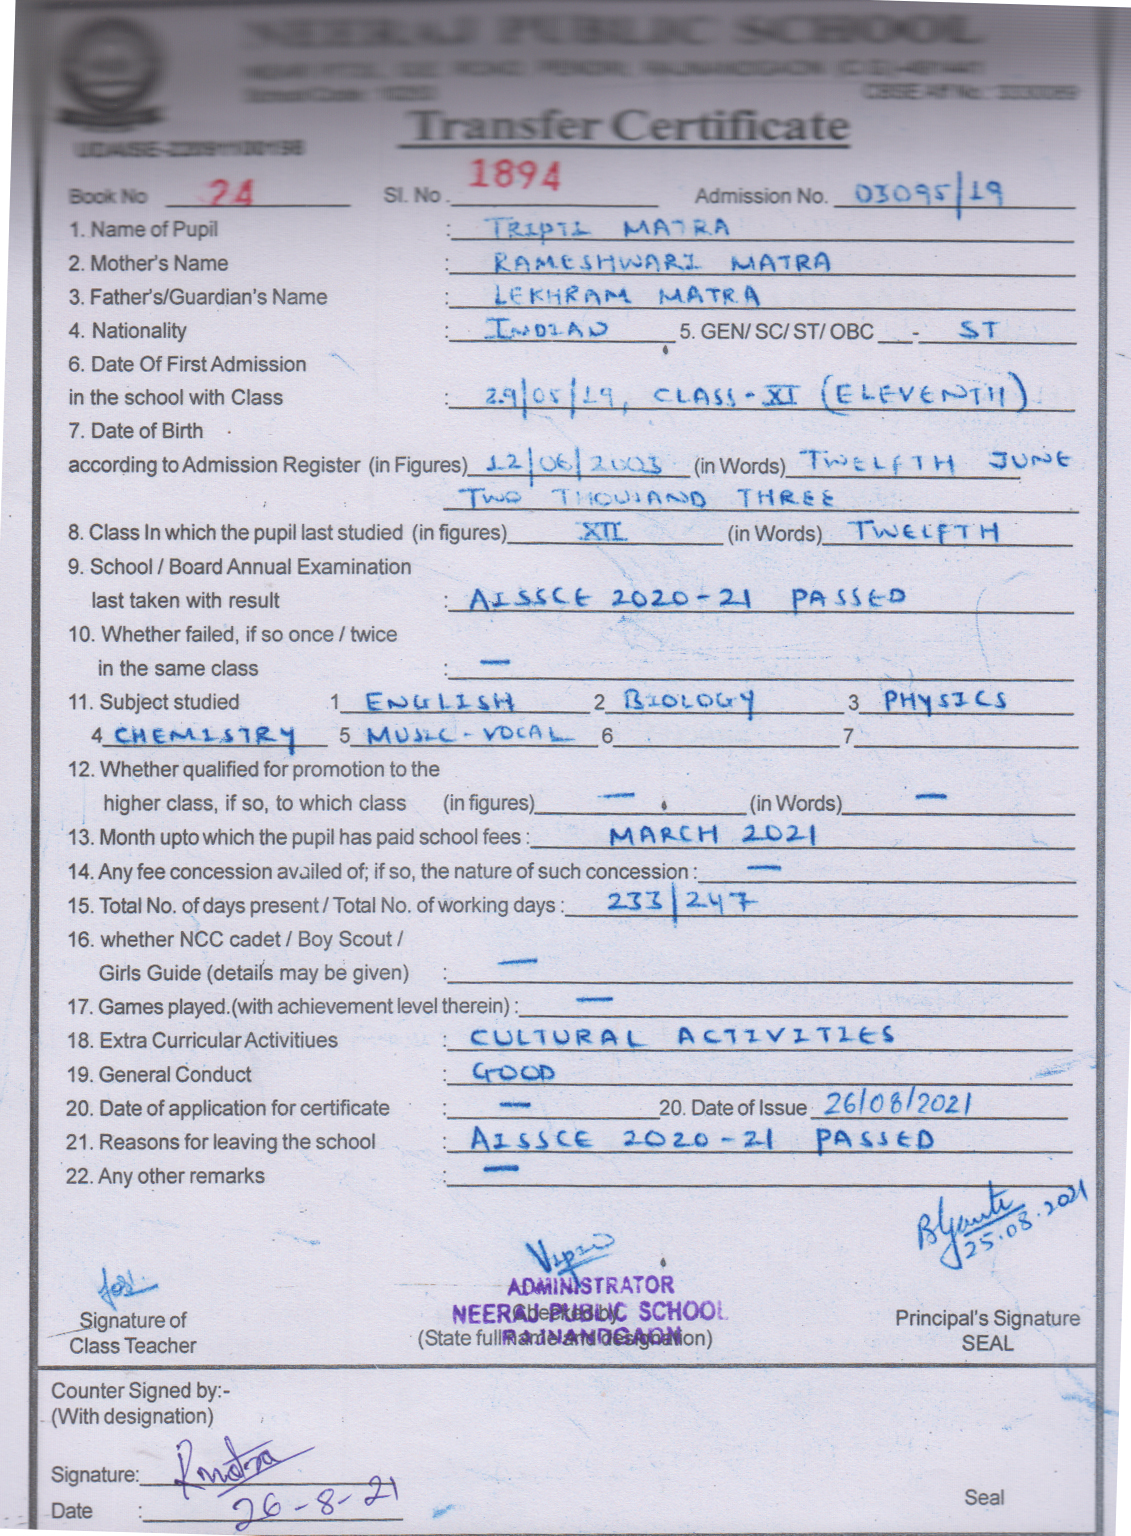 NEERAJ PUBLIC SCHOOL
Transfer Certificate
Book No 24 Sl. No. 1894 Admission No. 03095/19
1. Name of Pupil : TRIPTI MATRA
2. Mother's Name : RAMESHWARI MATRA
3. Father's/Guardian's Name : LEKHRAM MATRA
4. Nationality : INDIAN 5. GEN/ SC/ ST/ OBC - ST
6. Date Of First Admission
in the school with Class : 29/05/19, CLASS-XI (ELEVENTH)
7. Date of Birth
according to Admission Register (in Figures) 12/06/2003 (in Words) TWELFTH JUNE
TWO THOUSAND THREE
8. Class In which the pupil last studied (in figures) XII (in Words) TWELFTH
9. School / Board Annual Examination
last taken with result : AISSCE 2020-21 PASSED
10. Whether failed, if so once / twice
in the same class : —
11. Subject studied 1 ENGLISH 2 BIOLOGY 3 PHYSICS
4 CHEMISTRY 5 MUSIC-VOCAL 6 7
12. Whether qualified for promotion to the
higher class, if so, to which class (in figures) — (in Words) —
13. Month upto which the pupil has paid school fees : MARCH 2021
14. Any fee concession availed of; if so, the nature of such concession : —
15. Total No. of days present / Total No. of working days : 233/247
16. whether NCC cadet / Boy Scout /
Girls Guide (details may be given) : —
17. Games played.(with achievement level therein) : —
18. Extra Curricular Activitiues : CULTURAL ACTIVITIES
19. General Conduct : GOOD
20. Date of application for certificate : — 20. Date of Issue 26/08/2021
21. Reasons for leaving the school : AISSCE 2020-21 PASSED
22. Any other remarks : —
25.08.2021
ADMINISTRATOR
NEERAJ PUBLIC SCHOOL
RAJNANDGAON
Signature of Checked by Principal's Signature
Class Teacher (State full name and designation) SEAL
Counter Signed by:-
(With designation)
Signature: Rmatra
Date : 26-8-21 Seal